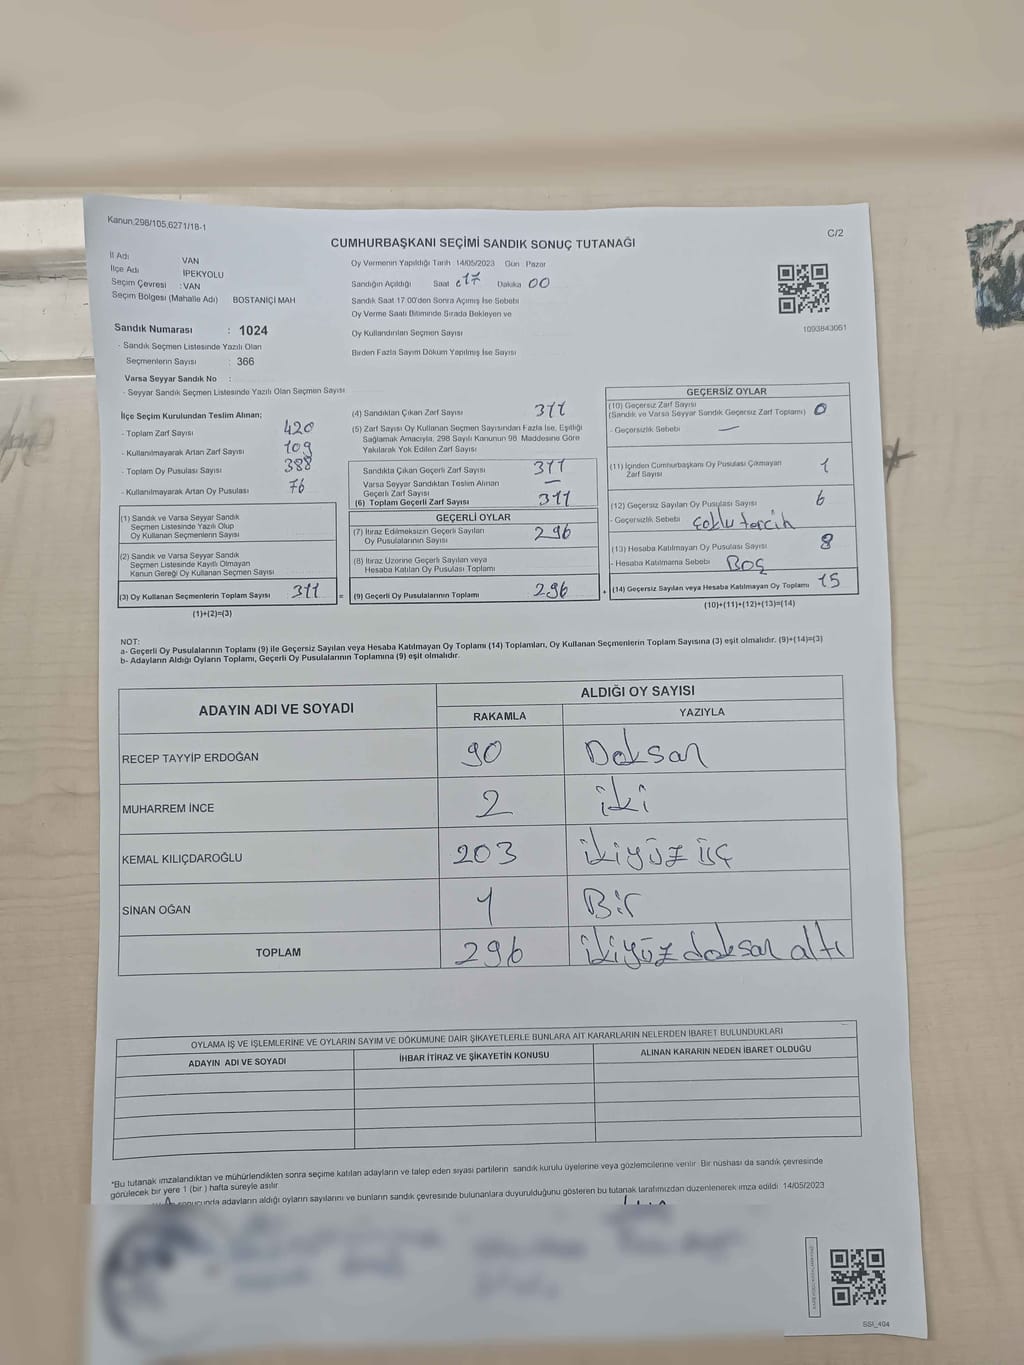 Kanun,298/105,6271/18-1
CUMHURBAŞKANI SEÇİMİ SANDIK SONUÇ TUTANAĞI
C/2
İl Adı VAN
İlçe Adı İPEKYOLU
Seçim Çevresi : VAN
Seçim Bölgesi (Mahalle Adı) BOSTANİÇİ MAH
Oy Vermenin Yapıldığı Tarih 14/05/2023 Gün Pazar
Sandığın Açıldığı Saat 17 Dakika 00
Sandık Saat 17 00'den Sonra Açımış İse Sebebi
Oy Verme Saati Bitiminde Sırada Bekleyen ve
Oy Kullandırılan Seçmen Sayısı
Birden Fazla Sayım Döküm Yapılmış İse Sayısı
1093843061
Sandık Numarası : 1024
- Sandık Seçmen Listesinde Yazılı Olan
Seçmenlerin Sayısı : 366
Varsa Seyyar Sandık No :
- Seyyar Sandık Seçmen Listesinde Yazılı Olan Seçmen Sayısı
İlçe Seçim Kurulundan Teslim Alınan;
- Toplam Zarf Sayısı 420
- Kullanılmayarak Artan Zarf Sayısı 109
- Toplam Oy Pusulası Sayısı 388
- Kullanılmayarak Artan Oy Pusulası 76
(1) Sandık ve Varsa Seyyar Sandık
Seçmen Listesinde Yazılı Olup
Oy Kullanan Seçmenlerin Sayısı
(2) Sandık ve Varsa Seyyar Sandık
Seçmen Listesinde Kayıtlı Olmayan
Kanun Gereği Oy Kullanan Seçmen Sayısı
(3) Oy Kullanan Seçmenlerin Toplam Sayısı 311 =
(1)+(2)=(3)
(4) Sandıktan Çıkan Zarf Sayısı 311
(5) Zarf Sayısı Oy Kullanan Seçmen Sayısından Fazla İse, Eşitliği
Sağlamak Amacıyla, 298 Sayılı Kanunun 98. Maddesine Göre
Yakılarak Yok Edilen Zarf Sayısı
Sandıkta Çıkan Geçerli Zarf Sayısı 311
Varsa Seyyar Sandıktan Teslim Alınan
Geçerli Zarf Sayısı —
(6) Toplam Geçerli Zarf Sayısı 311
GEÇERLİ OYLAR
(7) İtiraz Edilmeksizin Geçerli Sayılan
Oy Pusulalarının Sayısı 296
(8) İtiraz Üzerine Geçerli Sayılan veya
Hesaba Katılan Oy Pusulası Toplamı
(9) Geçerli Oy Pusulalarının Toplamı 296 +
GEÇERSİZ OYLAR
(10) Geçersiz Zarf Sayısı
(Sandık ve Varsa Seyyar Sandık Geçersiz Zarf Toplamı) 0
- Geçersizlik Sebebi —
(11) İçinden Cumhurbaşkanı Oy Pusulası Çıkmayan
Zarf Sayısı 1
(12) Geçersiz Sayılan Oy Pusulası Sayısı 6
- Geçersizlik Sebebi Çoklu tercih
(13) Hesaba Katılmayan Oy Pusulası Sayısı 8
- Hesaba Katılmama Sebebi Boş
(14) Geçersiz Sayılan veya Hesaba Katılmayan Oy Toplamı 15
(10)+(11)+(12)+(13)=(14)
NOT:
a- Geçerli Oy Pusulalarının Toplamı (9) ile Geçersiz Sayılan veya Hesaba Katılmayan Oy Toplamı (14) Toplamları, Oy Kullanan Seçmenlerin Toplam Sayısına (3) eşit olmalıdır. (9)+(14)=(3)
b- Adayların Aldığı Oyların Toplamı, Geçerli Oy Pusulalarının Toplamına (9) eşit olmalıdır.
ADAYIN ADI VE SOYADI
ALDIĞI OY SAYISI
RAKAMLA YAZIYLA
RECEP TAYYİP ERDOĞAN 90 Doksan
MUHARREM İNCE 2 iki
KEMAL KILIÇDAROĞLU 203 ikiyüz üç
SİNAN OĞAN 1 Bir
TOPLAM 296 ikiyüz doksan altı
OYLAMA İŞ VE İŞLEMLERİNE VE OYLARIN SAYIM VE DÖKÜMÜNE DAİR ŞİKAYETLERLE BUNLARA AİT KARARLARIN NELERDEN İBARET BULUNDUKLARI
ADAYIN ADI VE SOYADI İHBAR İTİRAZ VE ŞİKAYETİN KONUSU ALINAN KARARIN NEDEN İBARET OLDUĞU
*Bu tutanak imzalandıktan ve mühürlendikten sonra seçime katılan adayların ve talep eden siyasi partilerin sandık kurulu üyelerine veya gözlemcilerine verilir Bir nüshası da sandık çevresinde
görülecek bir yere 1 (bir ) hafta süreyle asılır
sonucunda adayların aldığı oyların sayılarını ve bunların sandık çevresinde bulunanlara duyurulduğunu gösteren bu tutanak tarafımızdan düzenlenerek imza edildi 14/05/2023
SSI_404